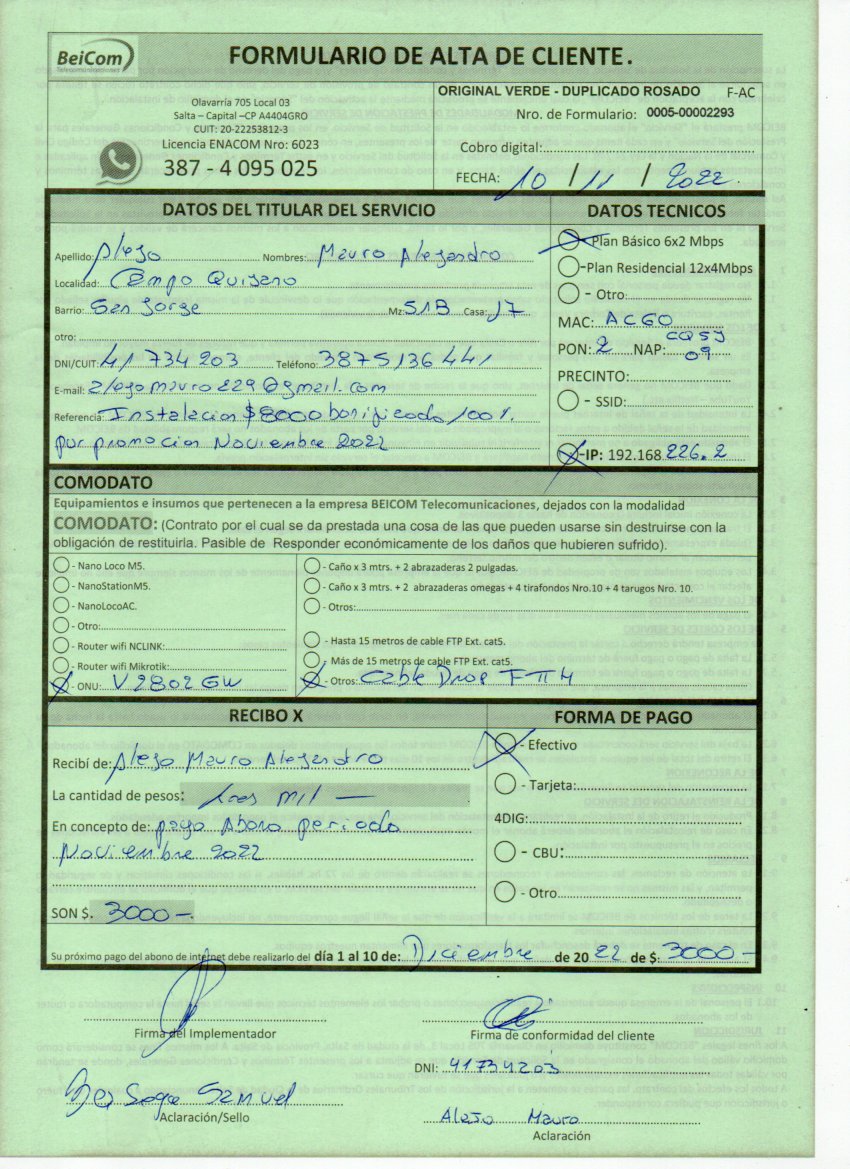 BeiCom
Telecomunicaciones
FORMULARIO DE ALTA DE CLIENTE.
Olavarría 705 Local 03
Salta – Capital –CP A4404GRO
CUIT: 20-22253812-3
Licencia ENACOM Nro: 6023
387 - 4 095 025
ORIGINAL VERDE - DUPLICADO ROSADO F-AC
Nro. de Formulario: 0005-00002293
Cobro digital:
FECHA: 10 / 11 / 2022.
DATOS DEL TITULAR DEL SERVICIO
Apellido: Alejo Nombres: Mauro Alejandro
Localidad: Campo Quijano
Barrio: San Jorge Mz: 51B Casa: 17
otro:
DNI/CUIT: 41 734 203 Teléfono: 3875136441
E-mail: alejomauro229@gmail.com
Referencia: Instalacion $8000 bonificado 100%.
por promocion Noviembre 2022
DATOS TECNICOS
Plan Básico 6x2 Mbps
-Plan Residencial 12x4Mbps
- Otro:
MAC: AC60
PON: 2 NAP: CQSJ
09
PRECINTO:
- SSID:
-IP: 192.168 226.2
COMODATO
Equipamientos e insumos que pertenecen a la empresa BEICOM Telecomunicaciones, dejados con la modalidad
COMODATO: (Contrato por el cual se da prestada una cosa de las que pueden usarse sin destruirse con la
obligación de restituirla. Pasible de Responder económicamente de los daños que hubieren sufrido).
- Nano Loco M5.
- NanoStationM5.
- NanoLocoAC.
- Otro:
- Router wifi NCLINK:
- Router wifi Mikrotik:
- ONU: V2802GW
- Caño x 3 mtrs. + 2 abrazaderas 2 pulgadas.
- Caño x 3 mtrs. + 2 abrazaderas omegas + 4 tirafondos Nro.10 + 4 tarugos Nro. 10.
- Otros:
- Hasta 15 metros de cable FTP Ext. cat5.
- Más de 15 metros de cable FTP Ext. cat5.
- Otros: Cable Drop FTTH
RECIBO X
Recibí de: Alejo Mauro Alejandro
La cantidad de pesos: tres mil —
En concepto de: pago Abono periodo
Noviembre 2022
SON $. 3000 –
FORMA DE PAGO
- Efectivo
- Tarjeta:
4DIG:
- CBU:
- Otro
Su próximo pago del abono de internet debe realizarlo del día 1 al 10 de: Diciembre de 20 22 de $: 3000 –
Firma del Implementador
Firma de conformidad del cliente
DNI: 41734203
Samuel
Aclaración/Sello
Alejo Mauro
Aclaración